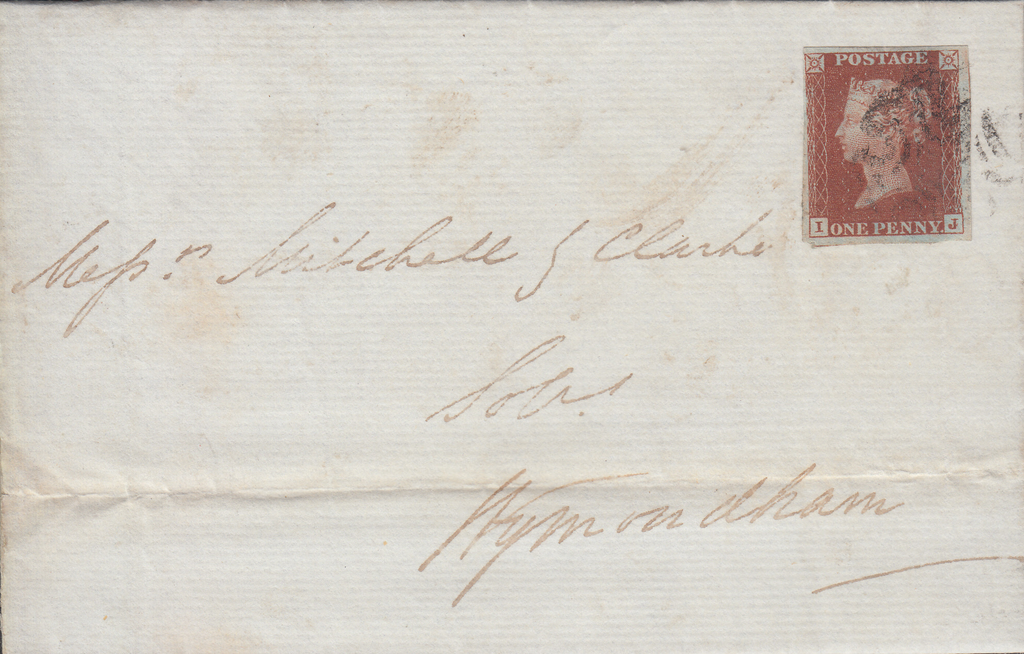 POSTAGE
I ONE PENNY. J
Messrs Mitchell & Clarke
Solrs
Wymondham